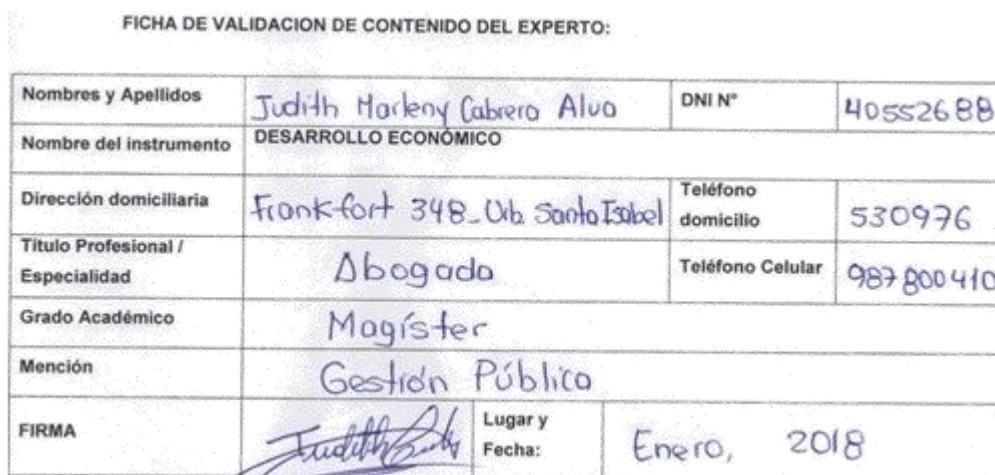 FICHA DE VALIDACION DE CONTENIDO DEL EXPERTO:
Nombres y Apellidos Judith Marleny Cabrera Alva DNI N° 40552688
Nombre del instrumento DESARROLLO ECONÓMICO
Dirección domiciliaria Frankfort 348_Urb. Santa Isabel Teléfono domicilio 530976
Título Profesional / Especialidad Abogada Teléfono Celular 987800410
Grado Académico Magíster
Mención Gestión Pública
FIRMA Judith Lugar y Fecha: Enero, 2018